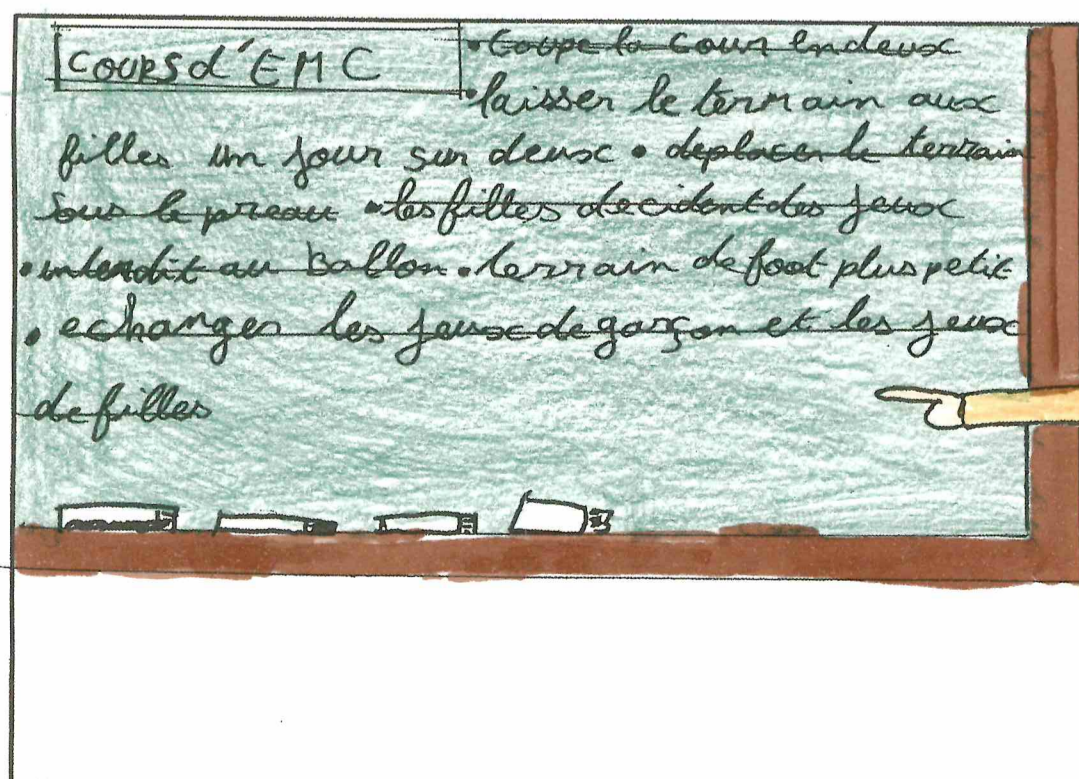 Cours d'EMC
• coupe la cour en deux
• laisser le terrain aux
filles un jour sur deux • deplacer le terrain
sous le preau • les filles decident des jeux
• interdit au ballon • terrain de foot plus petit
• echanger les jeux de garçon et les jeux
de filles